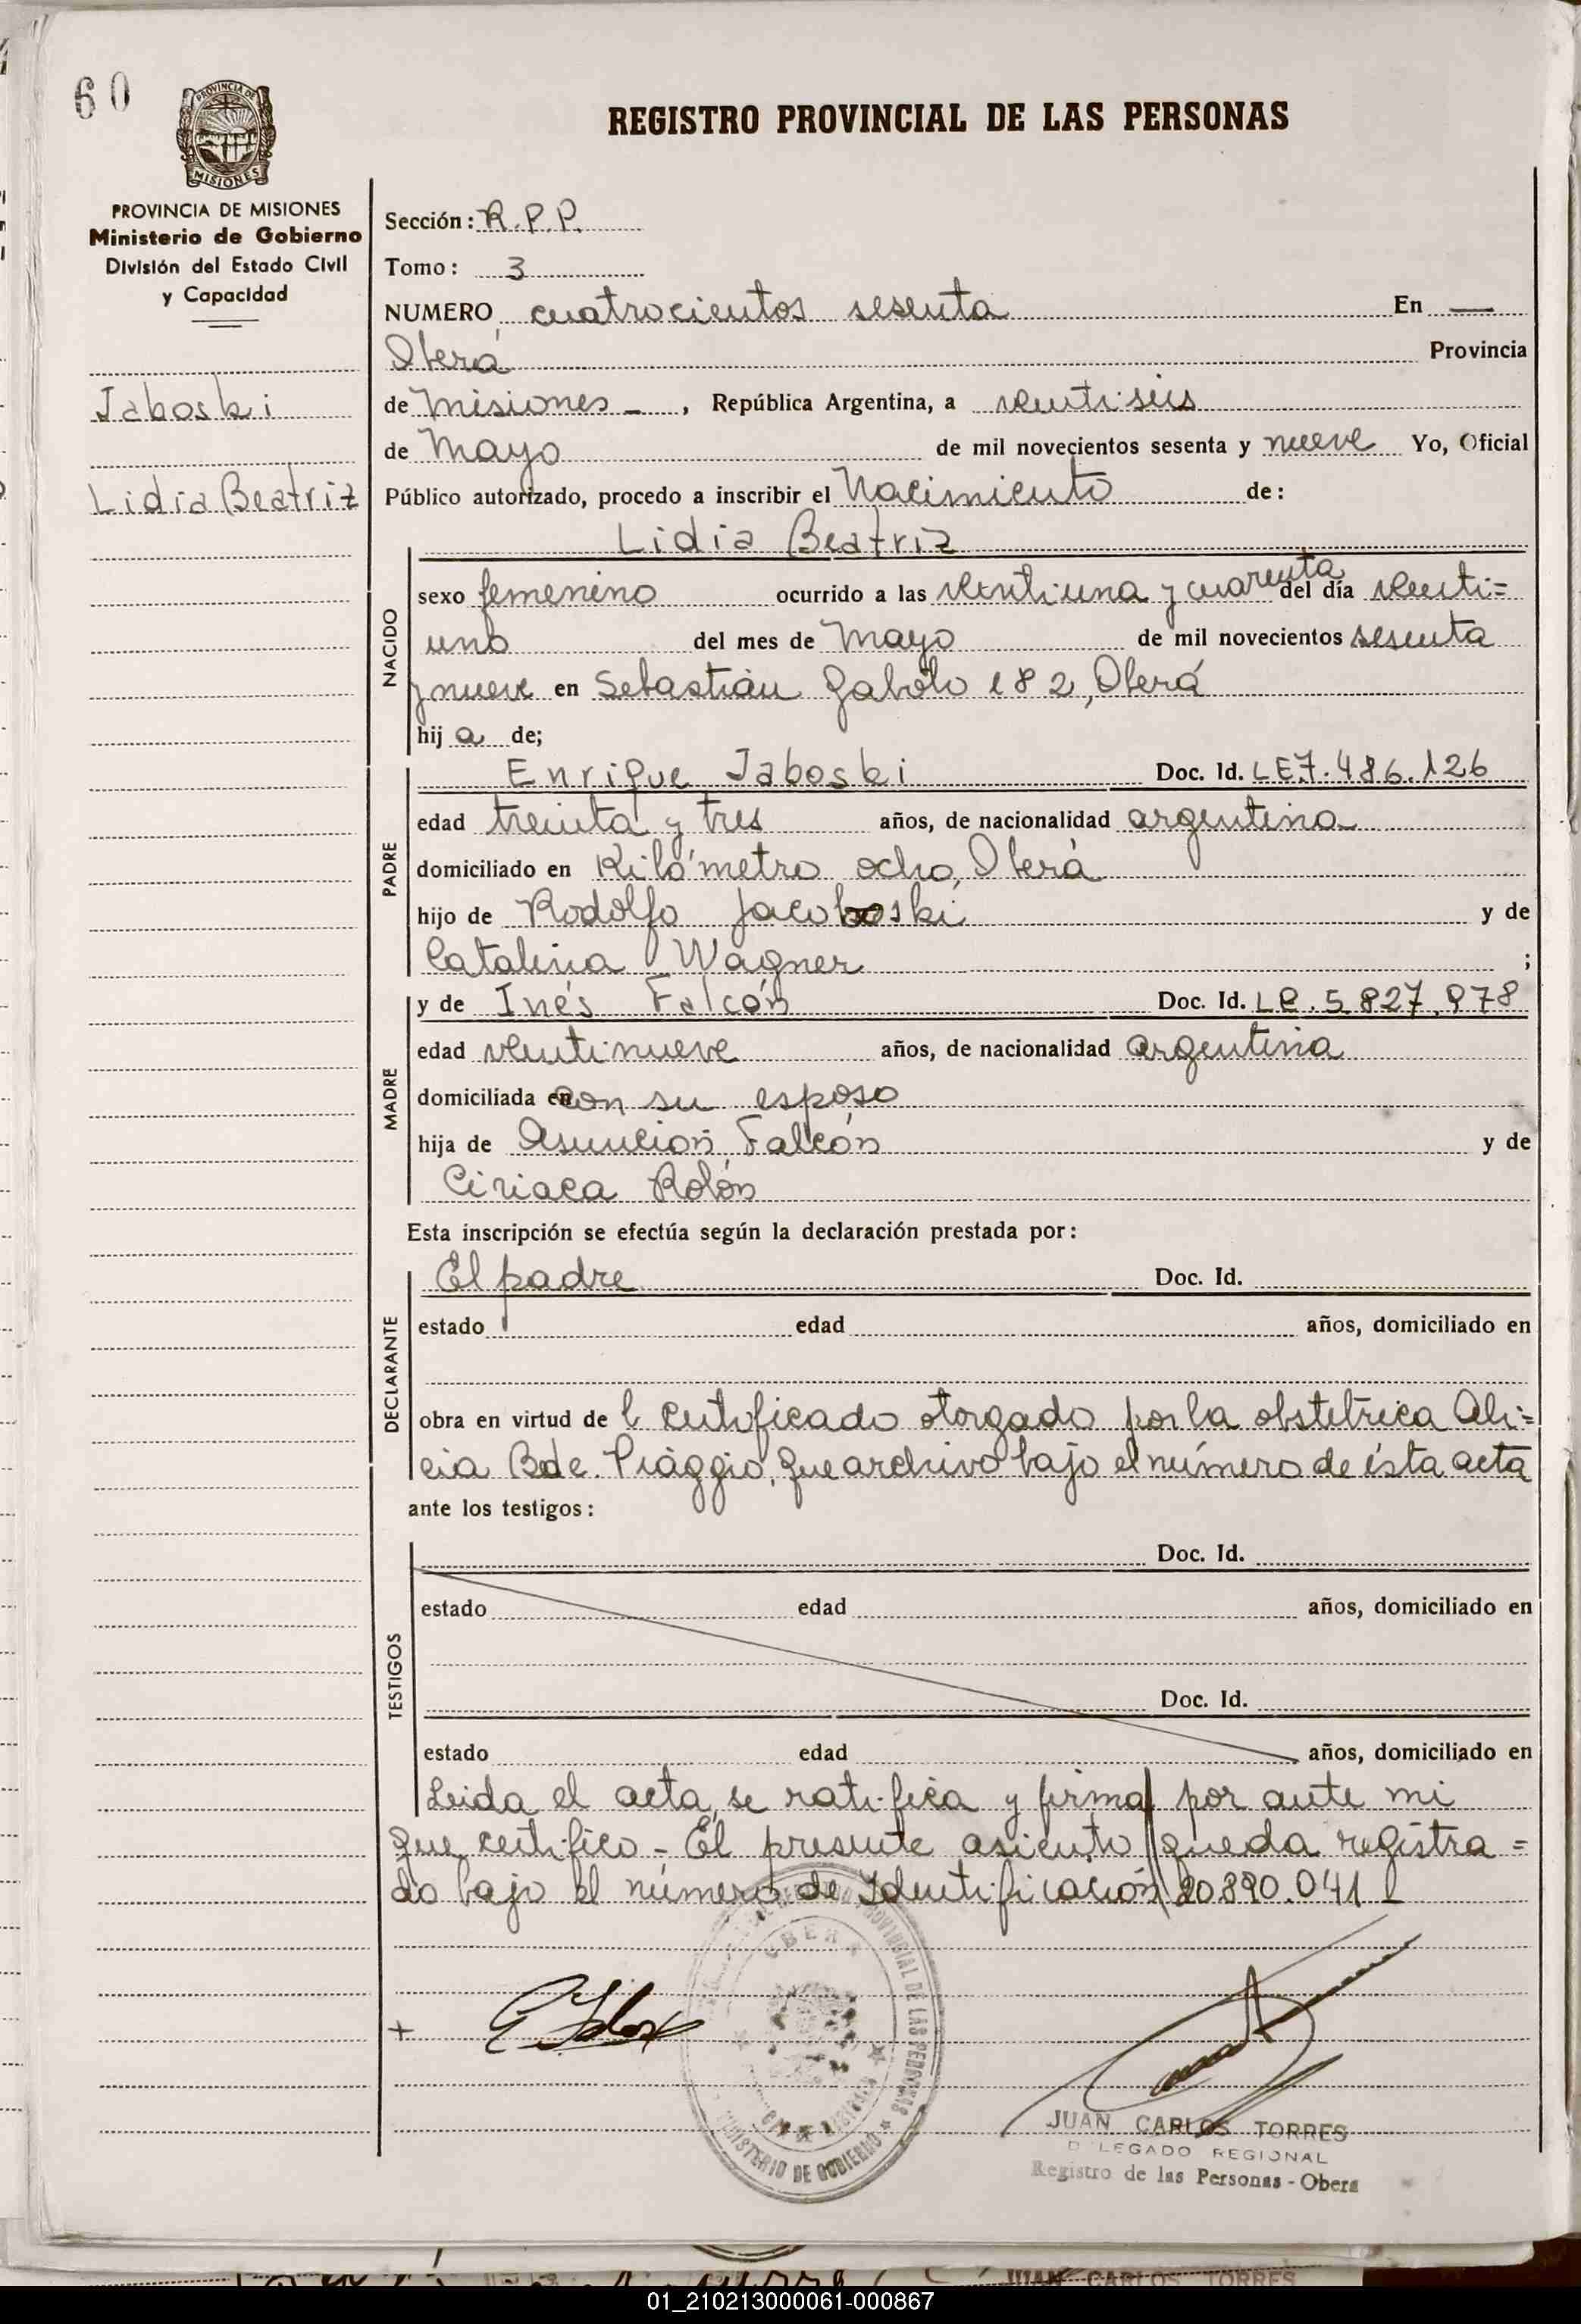 60
PROVINCIA DE
MISIONES
REGISTRO PROVINCIAL DE LAS PERSONAS
PROVINCIA DE MISIONES
Ministerio de Gobierno
División del Estado Civil
y Capacidad
Jaboski
Lidia Beatriz
Sección: R.P.P.
Tomo: 3
NUMERO cuatrocientos sesenta En —
Oberá Provincia
de Misiones - , República Argentina, a veintiseis
de Mayo de mil novecientos sesenta y nueve Yo, Oficial
Público autorizado, procedo a inscribir el Nacimiento de:
Lidia Beatriz
NACIDO
sexo femenino ocurrido a las ventiuna y cuarenta del día venti=
uno del mes de Mayo de mil novecientos sesenta
y nueve en Sebastián Gaboto 182, Oberá
hij a de;
PADRE
Enrique Jaboski Doc. Id. LE 7.486.126
edad treinta y tres años, de nacionalidad argentina
domiciliado en Kilómetro ocho, Oberá
hijo de Rodolfo Jacoboski y de
Catalina Wagner ;
MADRE
y de Inés Falcón Doc. Id. LC. 5.827.978
edad ventinueve años, de nacionalidad argentina
domiciliada en con su esposo
hija de Asunción Falcón y de
Ciriaca Rolón
Esta inscripción se efectúa según la declaración prestada por:
DECLARANTE
El padre Doc. Id.
estado edad años, domiciliado en
obra en virtud de l certificado otorgado por la obstetrica Ali=
cia B. de Piaggio, que archivo bajo el número de ésta acta
ante los testigos:
TESTIGOS
Doc. Id.
estado edad años, domiciliado en
Doc. Id.
estado edad años, domiciliado en
Leida el acta, se ratifica y firma por ante mi
que certifico - El presente asiento queda registra=
do bajo el número de Identificación 20.890.041
OBERA
PROVINCIAL DE LAS PERSONAS
MINISTERIO DE GOBIERNO
+
JUAN CARLOS TORRES
DELEGADO REGIONAL
Registro de las Personas - Obera
JUAN CARLOS TORRES
01_210213000061-000867